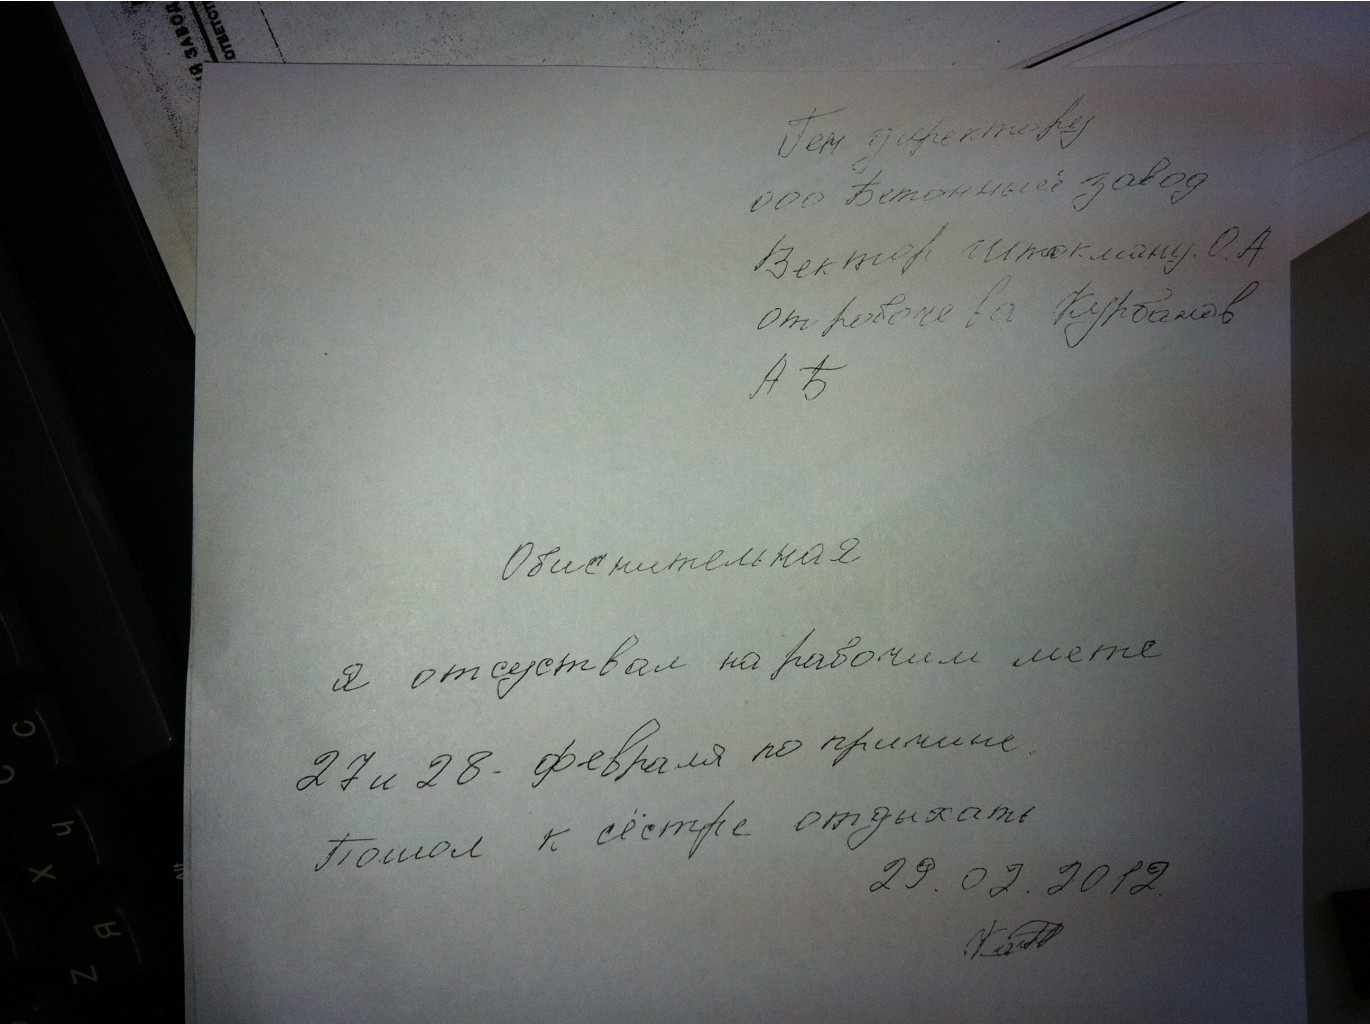 Я ЗАВОД
ОТВЕТСТ
Ген директору
ооо Бетонный завод
Вектор Штокману. О.А
от робоче ва Курбанов
А Б
Обиснительная
Я отсуствал на рабочим месте
27 и 28 - февраля по причине.
Пошол к сёстре отдыхать
29.02.2012.
С
C
Ч
X
Я
Z
Alt